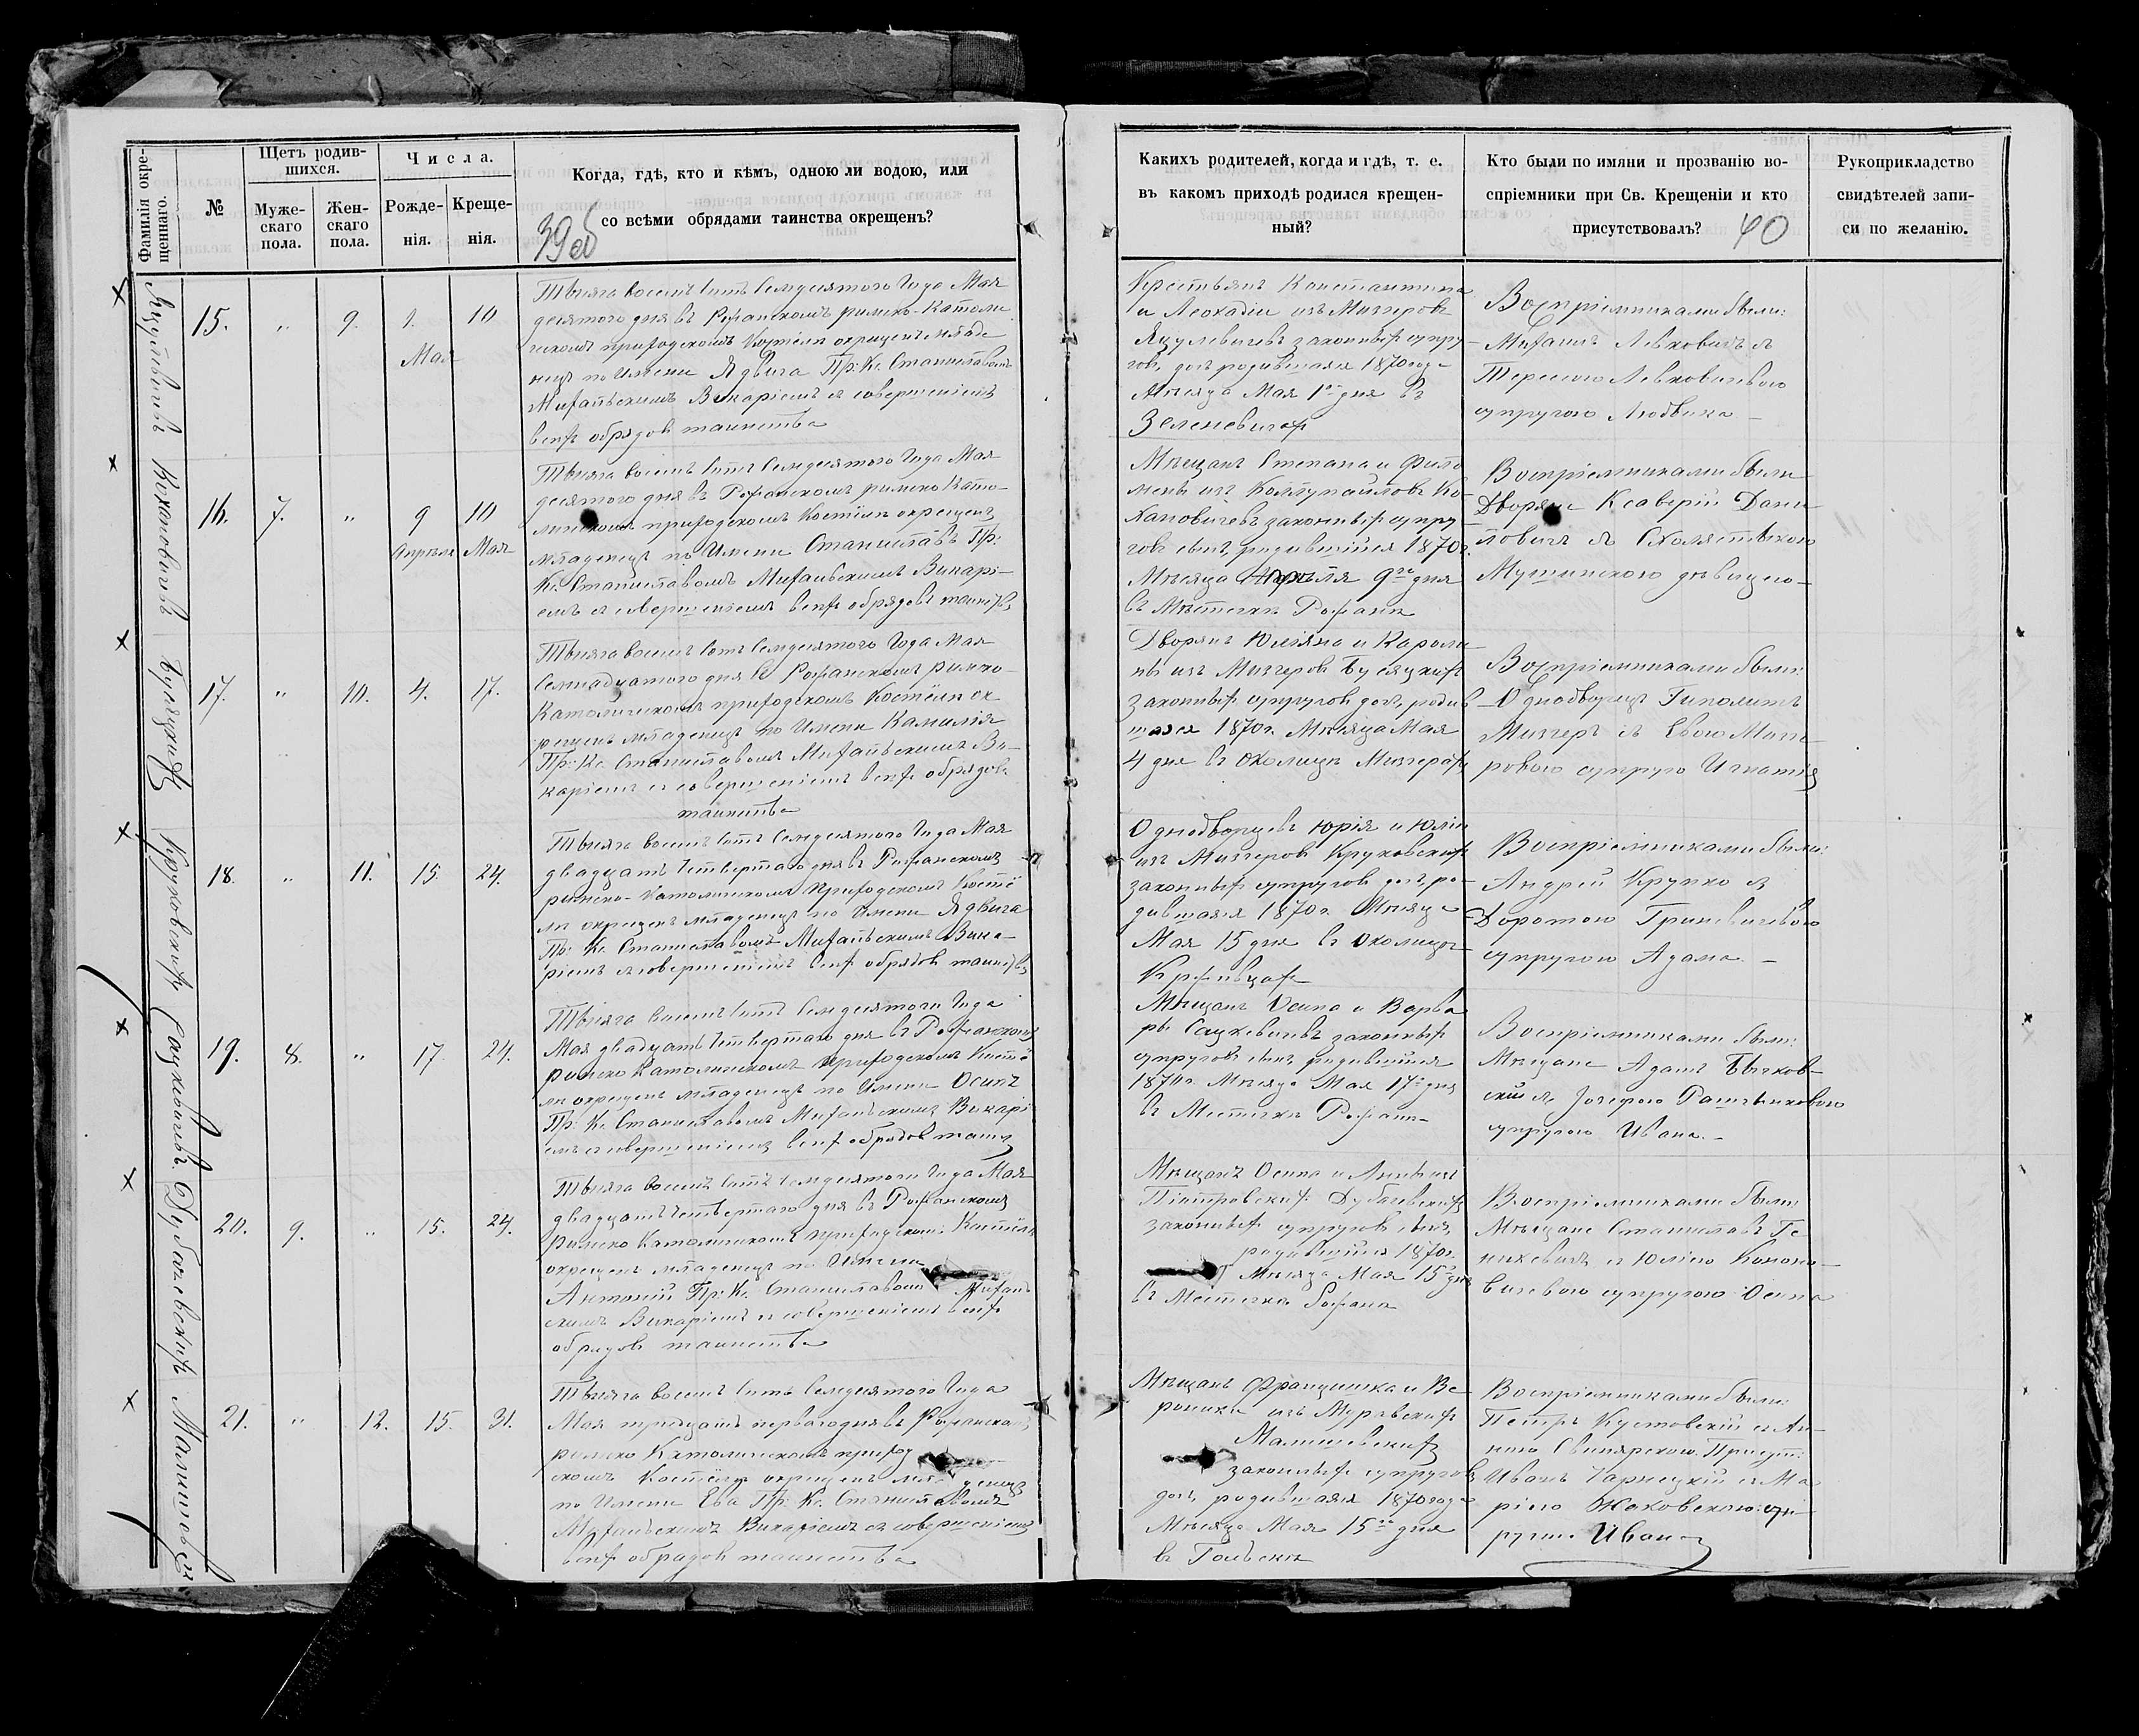 Фамилія окре-
щеннаго.
№
Щетъ родив-
шихся.
Муже-
скаго
пола.
Жен-
скаго
пола.
Числа.
Рожде-
нія.
Креще-
нія.
Когда, гдѣ, кто и кѣмъ, одною ли водою, или
со всѣми обрядами таинства окрещенъ?
39об
15. " 9. 1. 10
Мая
Тысяча восемь сотъ семдесятого Года Мая
десятого дня въ Рожанскомъ римско-католи
ческомъ приходскомъ Костелѣ окрещенъ младе
нецъ по Имени Ядвига Пр: Кс. Станиславомъ
Михальскимъ Викаріемъ съ совершеніемъ
всѣхъ обрядовъ таинства
Коханович
16. 7. " 9 10
Апрѣля Мая
Тысяча восемь сотъ семдесятого Года Мая
десятого дня въ Рожанскомъ римско Като-
приходскомъ Костёлѣ окрещенъ
младенецъ по Имени Станиславъ Пр:
Кс. Станиславомъ Михальскимъ Викарі-
емъ съ совершеніемъ всѣхъ обрядовъ
Бусяцкихъ
17. " 10. 4. 17.
Тысяча восемь сотъ семдесятого Года Мая
семнадцатого дня въ Рожанскомъ римско-
Католическомъ приходскомъ Костелѣ ок
рещенъ младенецъ по Имени Камилія
Пр: Кс. Станиславомъ Михальскимъ Ви-
каріемъ съ совершеніемъ всѣхъ обрядовъ
таинства
Круковскихъ
18. " 11. 15. 24.
Тысяча восемь сотъ семдесятого Года Мая
двадцать четвертаго дня въ Рожанскомъ
римско-католическомъ приходскомъ Костё
лѣ окрещенъ младенецъ по Имени Ядвига
Пр: Кс. Станиславомъ Михальскимъ Вика-
ріемъ съ совершеніемъ всѣхъ обрядовъ
19. 8. " 17. 24.
Тысяча восемь сотъ семдесятого Года
Мая двадцать четвертаго дня въ Рожанскомъ
римско Католическомъ приходскомъ Костё
лѣ окрещенъ младенецъ по Имени Осипъ
Пр: Кс. Станиславомъ Михальскимъ Викарі
емъ съ совершеніемъ всѣхъ обрядовъ
20. 9. " 15. 24.
Тысяча восемь сотъ семдесятого Года Мая
двадцать четвертаго дня въ Рожанскомъ
римско Католическомъ приходскомъ Костёлѣ
окрещенъ младенецъ по Имени
Антоній Пр: Кс. Станиславомъ Михаль
скимъ Викаріемъ съ совершеніемъ всѣхъ
обрядовъ таинства
21. " 12. 15. 31.
Тысяча восемь сотъ семдесятого Года
Мая тридцать первого дня въ Рожанскомъ
римско Католическомъ приход
скомъ Костёлѣ окрещенъ мла денецъ
по Имени Ева Пр: Кс. Станиславомъ
Михальскимъ Викаріемъ съ совершеніемъ
всѣхъ обрядовъ таинства
Какихъ родителей, когда и гдѣ, т. е.
въ какомъ приходѣ родился крещен-
ный?
Кто были по имяни и прозванію во-
спріемники при Св. Крещеніи и кто
присутствовалъ? 40
Рукоприкладство
свидѣтелей запи-
си по желанію.
Крестьянъ Константина
и Леокадіи изъ Мизгеровъ
законныхъ супру-
говъ дочь родившаяся 1870 года
Мѣсяца Мая 1го дня въ
Зеленевичахъ
Воспріемниками были:
Михаилъ Левковичъ съ
Терезою Левковичевою
супругою Людвика
Мѣщанъ Степана и Фило
мены изъ Ко-
хановичевъ законныхъ супру-
говъ сынъ, родившійся 1870г.
Мѣсяца Апрѣля 9го дня
въ Мѣстечкѣ Рожанѣ
Воспріемниками были
Ксаверій Дани
ловичъ съ Схолястыкою
дѣвицею
Дворянъ Юліяна и Кароли
ны изъ Мизгеровъ Бусяцкихъ
законныхъ супруговъ дочь, родив
шаяся 1870г. Мѣсяца Мая
4 дня въ околицѣ Мизгерахъ
Воспріемниками были:
Однодворецъ Гиполитъ
Мизгеръ съ Евою Мизге-
ровою супругою Игнатія
Однодворцевъ Юрія и Юліи
изъ Мизгеровъ Круковскихъ
законныхъ супруговъ дочь, ро-
дившаяся 1870г. Мѣсяца
Мая 15 дня въ околицѣ
Воспріемниками были:
Андрей Крупко съ
Доротою Гриневичевою
супругою Адама
Мѣщанъ Осипа и Варва
ры Сацкевичевъ законныхъ
супруговъ сынъ, родившійся
1870г. Мѣсяца Мая 17го дня
въ Местечкѣ Рожанѣ
Воспріемниками были:
Мѣщане Адамъ Бычков-
скій съ Іозефою
супругою Ивана.
Мѣщанъ Осипа и
законныхъ супруговъ сынъ,
родившійся 1870г.
Мѣсяца Мая 15го дня
въ Местечкѣ Рожанѣ
Воспріемниками были:
Мѣщане Станиславъ
съ Юліею Конона-
вичевою супругою Осипа
Мѣщанъ Францишка и Ве
роники изъ Муравскихъ
Малишевскихъ
законныхъ супруговъ
дочь, родившаяся 1870 года
Мѣсяца Мая 15го дня
Воспріемниками были:
Петръ Кустовскій съ Ан-
ною
Иванъ съ Ма
ріею
Ивана